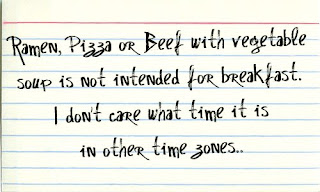 Ramen, Pizza or Beef with vegetable
soup is not intended for breakfast.
I don't care what time it is
in other time zones..